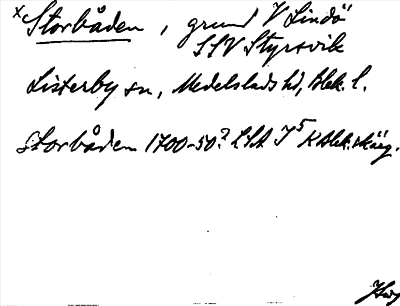 x Storbåden, grund V Lindö
SSV Styrsvik
Listerby sn, Medelstads hd, Blek. l.
Storbåden 1700-50? LSA J5 K Blek. skärg.